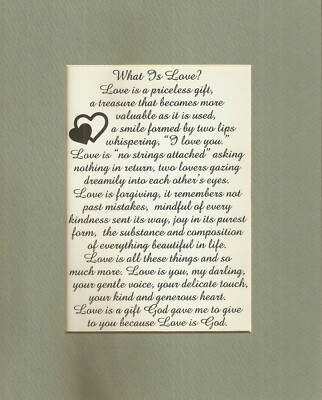 What Is Love?
Love is a priceless gift,
a treasure that becomes more
valuable as it is used,
a smile formed by two lips
whispering, "I love you."
Love is "no strings attached" asking
nothing in return, two lovers gazing
dreamily into each other's eyes.
Love is forgiving, it remembers not
past mistakes, mindful of every
kindness sent its way, joy in its purest
form, the substance and composition
of everything beautiful in life.
Love is all these things and so
much more. Love is you, my darling,
your gentle voice, your delicate touch,
your kind and generous heart.
Love is a gift God gave me to give
to you because Love is God.